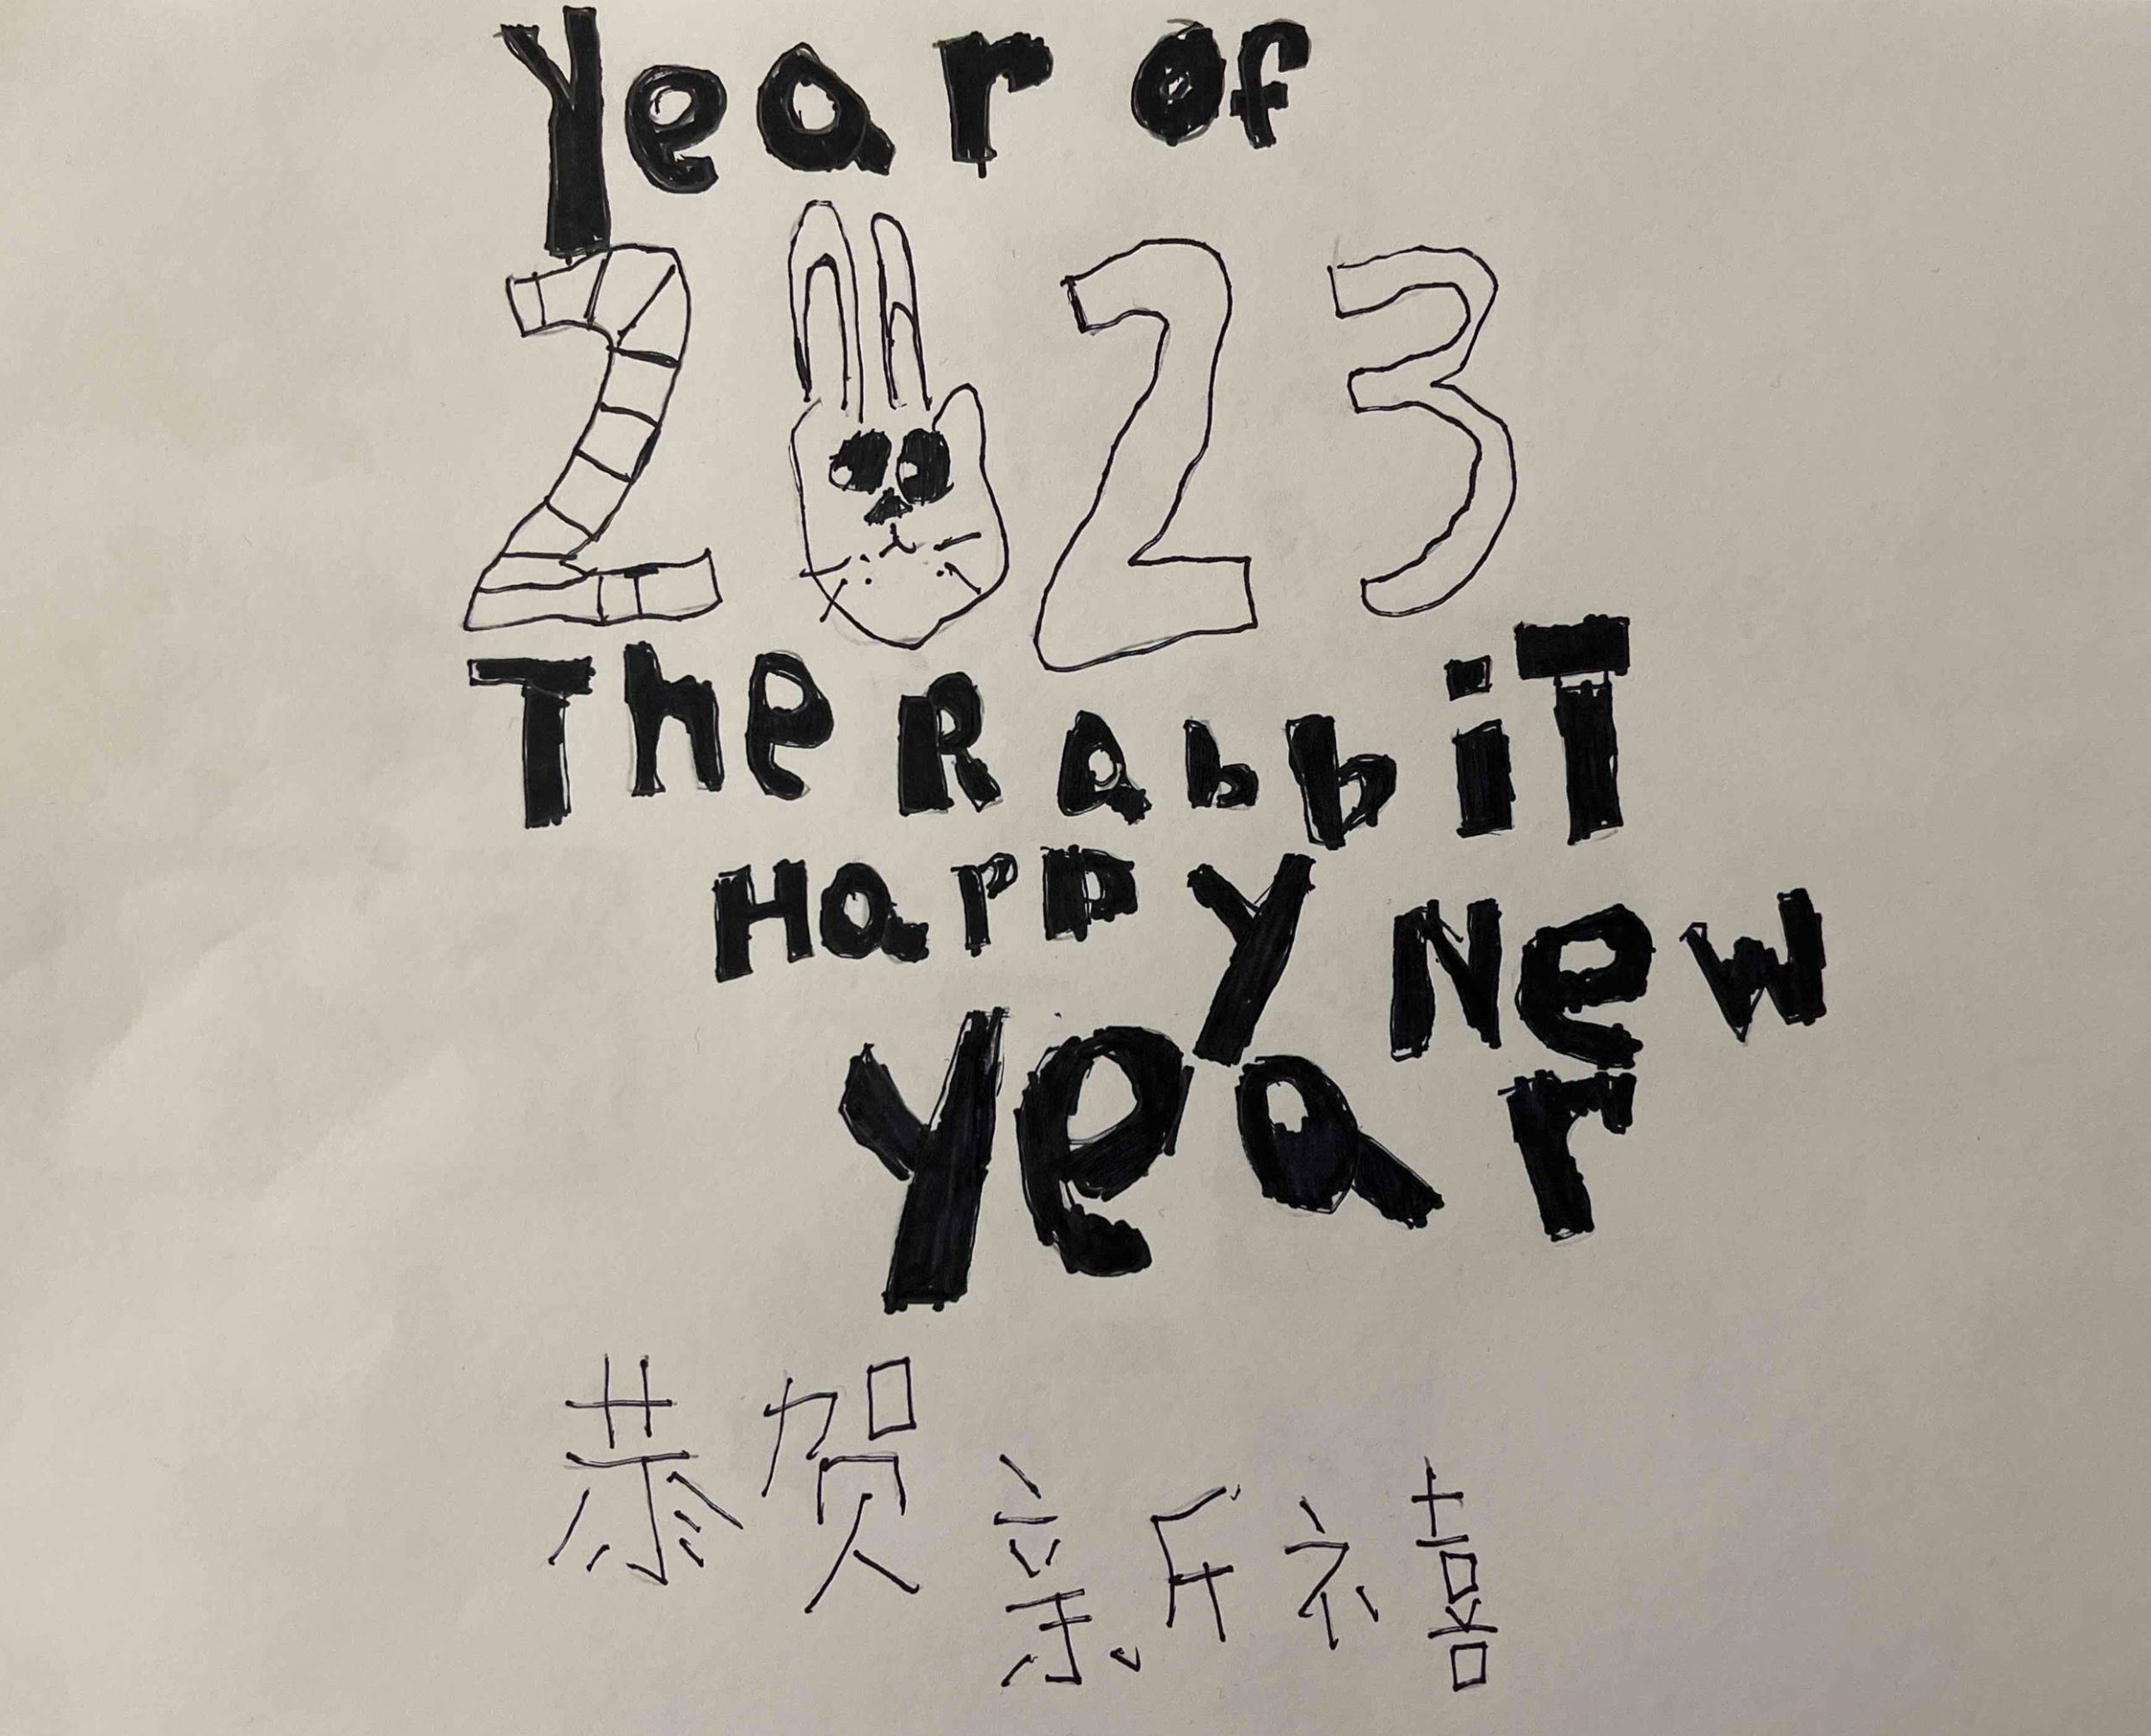 Year of
2023
The RabbiT
Happy New
year
恭贺新禧